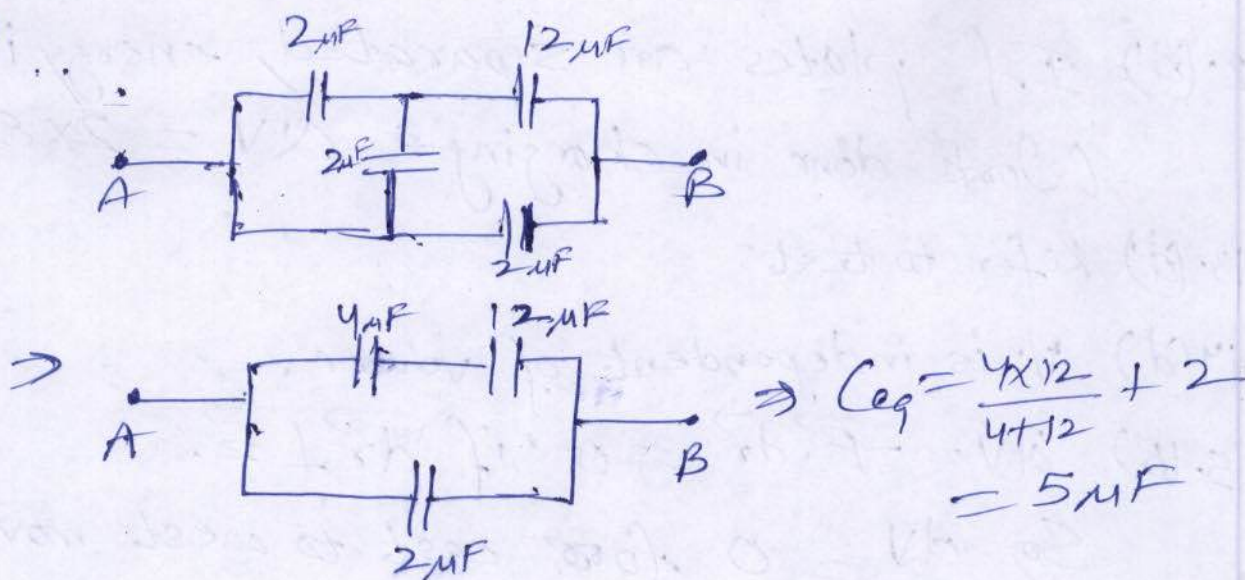 2μF 12μF
2μF
A B
2μF
4μF 12μF
⇒ A B ⇒ Ceq = 4×12/4+12 + 2
= 5μF
2μF